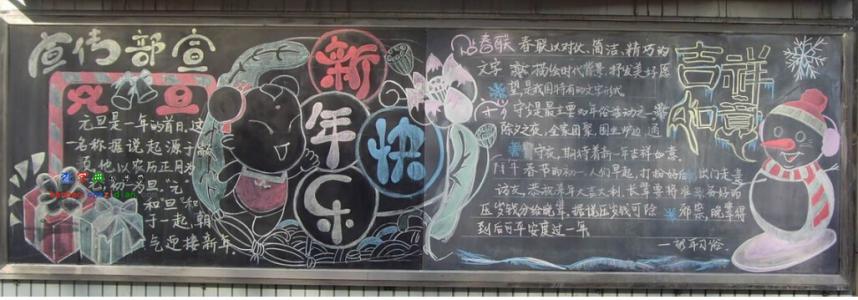 宣传部宣
元旦
元旦是一年的首日,这
名称据说起源于
他以农历正月为
元,初一为旦。元
和旦和
于一起,朝
气迎接新年。
新
年
快
乐
春联 春联以对仗、简洁、精巧的
文字 描绘时代背景,抒发美好愿
望,是我国特有的文学形式
守岁是最主要的年俗活动之一
除夕之夜,全家团聚,围坐炉边,通
守夜,期待着新一年吉祥如意。
拜年 春节的初一,人们早起,打扮好后 出门走亲
访友,恭祝来年大吉大利,长辈要将准备好的
压岁钱分给晚辈,据说压岁钱可除 邪祟,晚辈得
到后可平安度过一年。
一新年习俗.
吉祥
如意